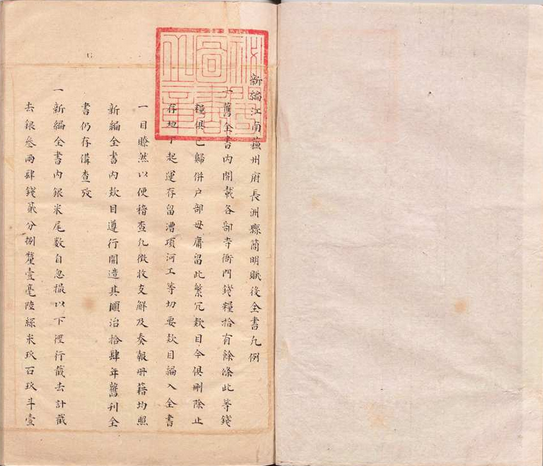 新編江南蘇州府長洲縣簡明賦役全書凡例
一舊全書內開載各部寺衙門錢糧拾有餘條此等錢
糧俱已歸併戶部毋庸留此繁冗欵目今俱刪除止
存地丁起運存留漕項河工等切要欵目編入全書
一目瞭然以便稽查凡徵收支解及奏報冊籍均照
新編全書內欵目遵行開造其順治拾肆年舊刊全
書仍存備查攷
一新編全書內銀米尾數自忽撮以下裡行截去計截
去銀叁兩肆錢貳分捌釐壹毫陸絲米玖石玖斗壹